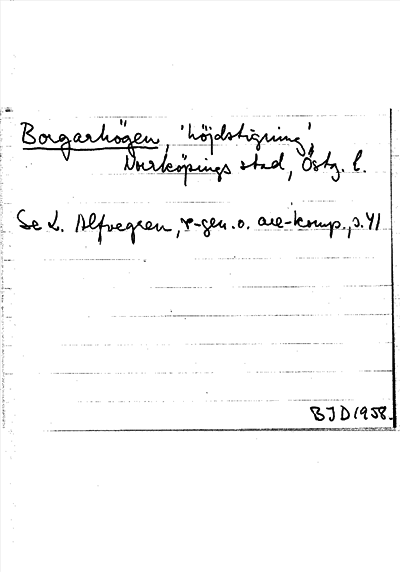 Borgarhögen, 'höjdstigning'
Norrköpings stad, Östg. l.
Se L. Alfvegren, r-gen. o. are-komp., s. 41
BJD 1958.